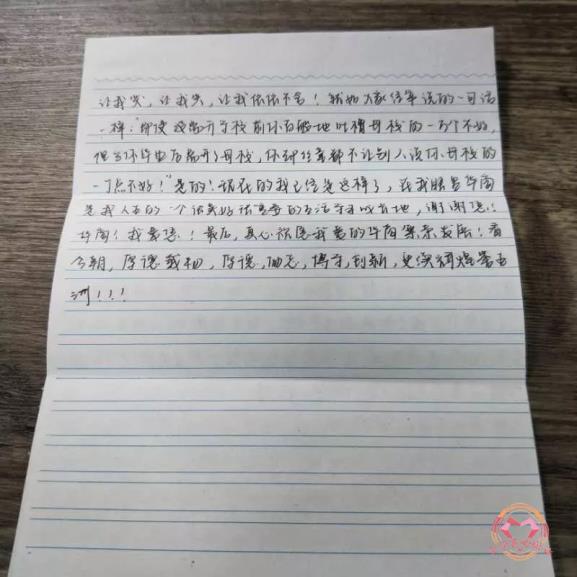 让我哭，让我笑，让我依依不舍！就如大家经常说的一句话
一样："即使你离开学校前你百般地吐槽母校的一万个不好，
但当你毕业后离开了母校，你却终身都不让别人说你母校的
一丁点不好！"是的！现在的我已经是这样了，在我眼里华商
是我人生的一个很美好很重要的生活学习成长地，谢谢您！
华商！我爱您！最后，真心祝愿我爱的华商集永发展！看
今朝，厚德载物，厚德，励志，博学，创新，更续辉煌第五
洲！！！